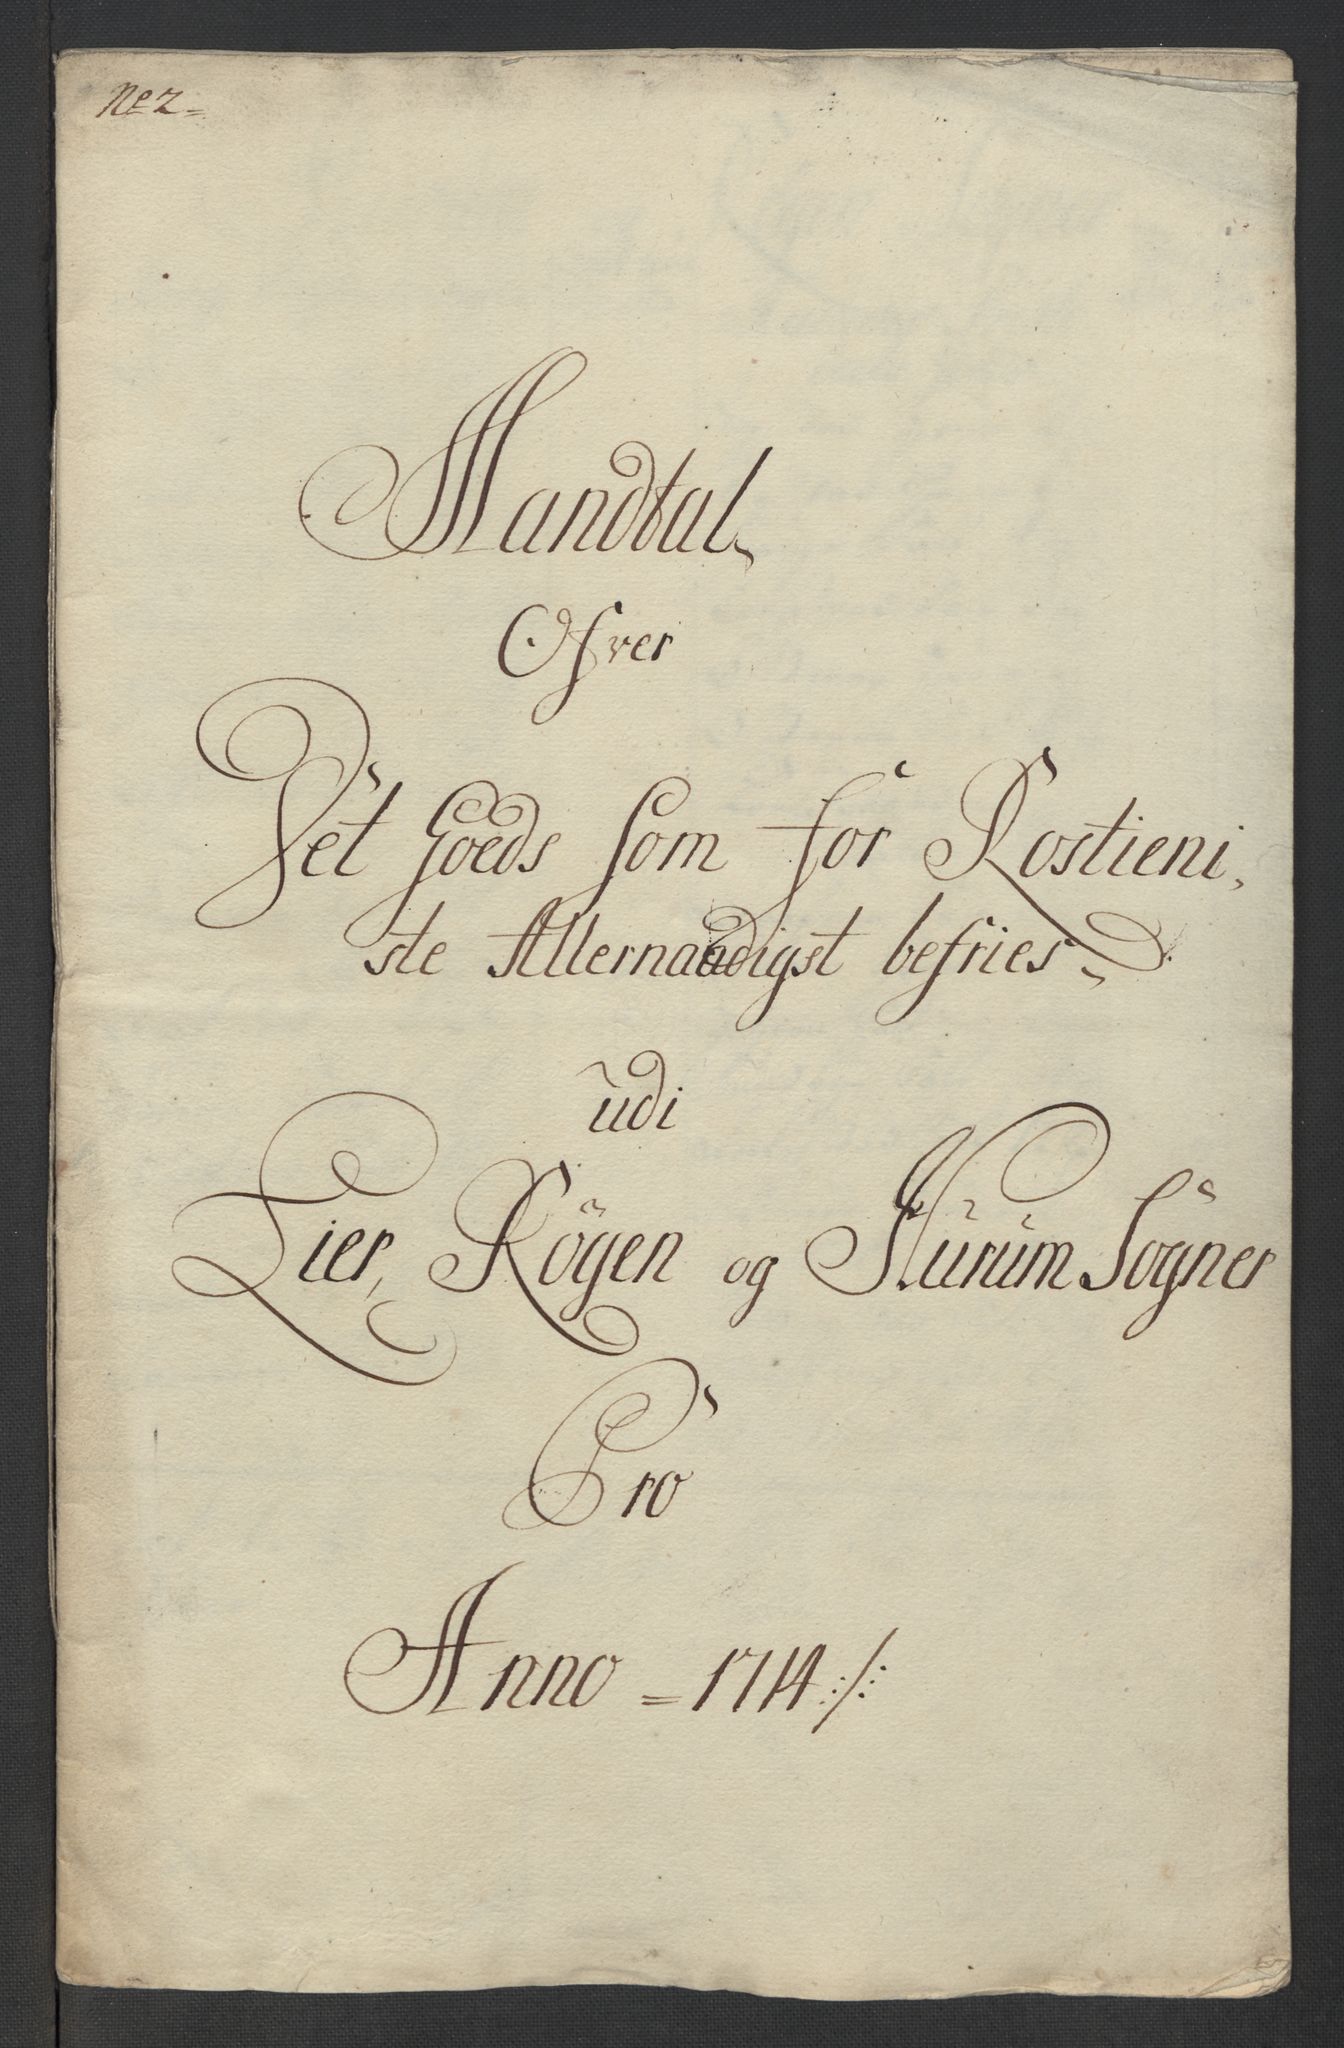 No 2=
Mandtal
Ofver
Det Goeds som for Rostieni,
ste Allernaadigst befries
udi
Lier, Röigen og Hurum Sogner
Pro
Anno = 1714 ./.